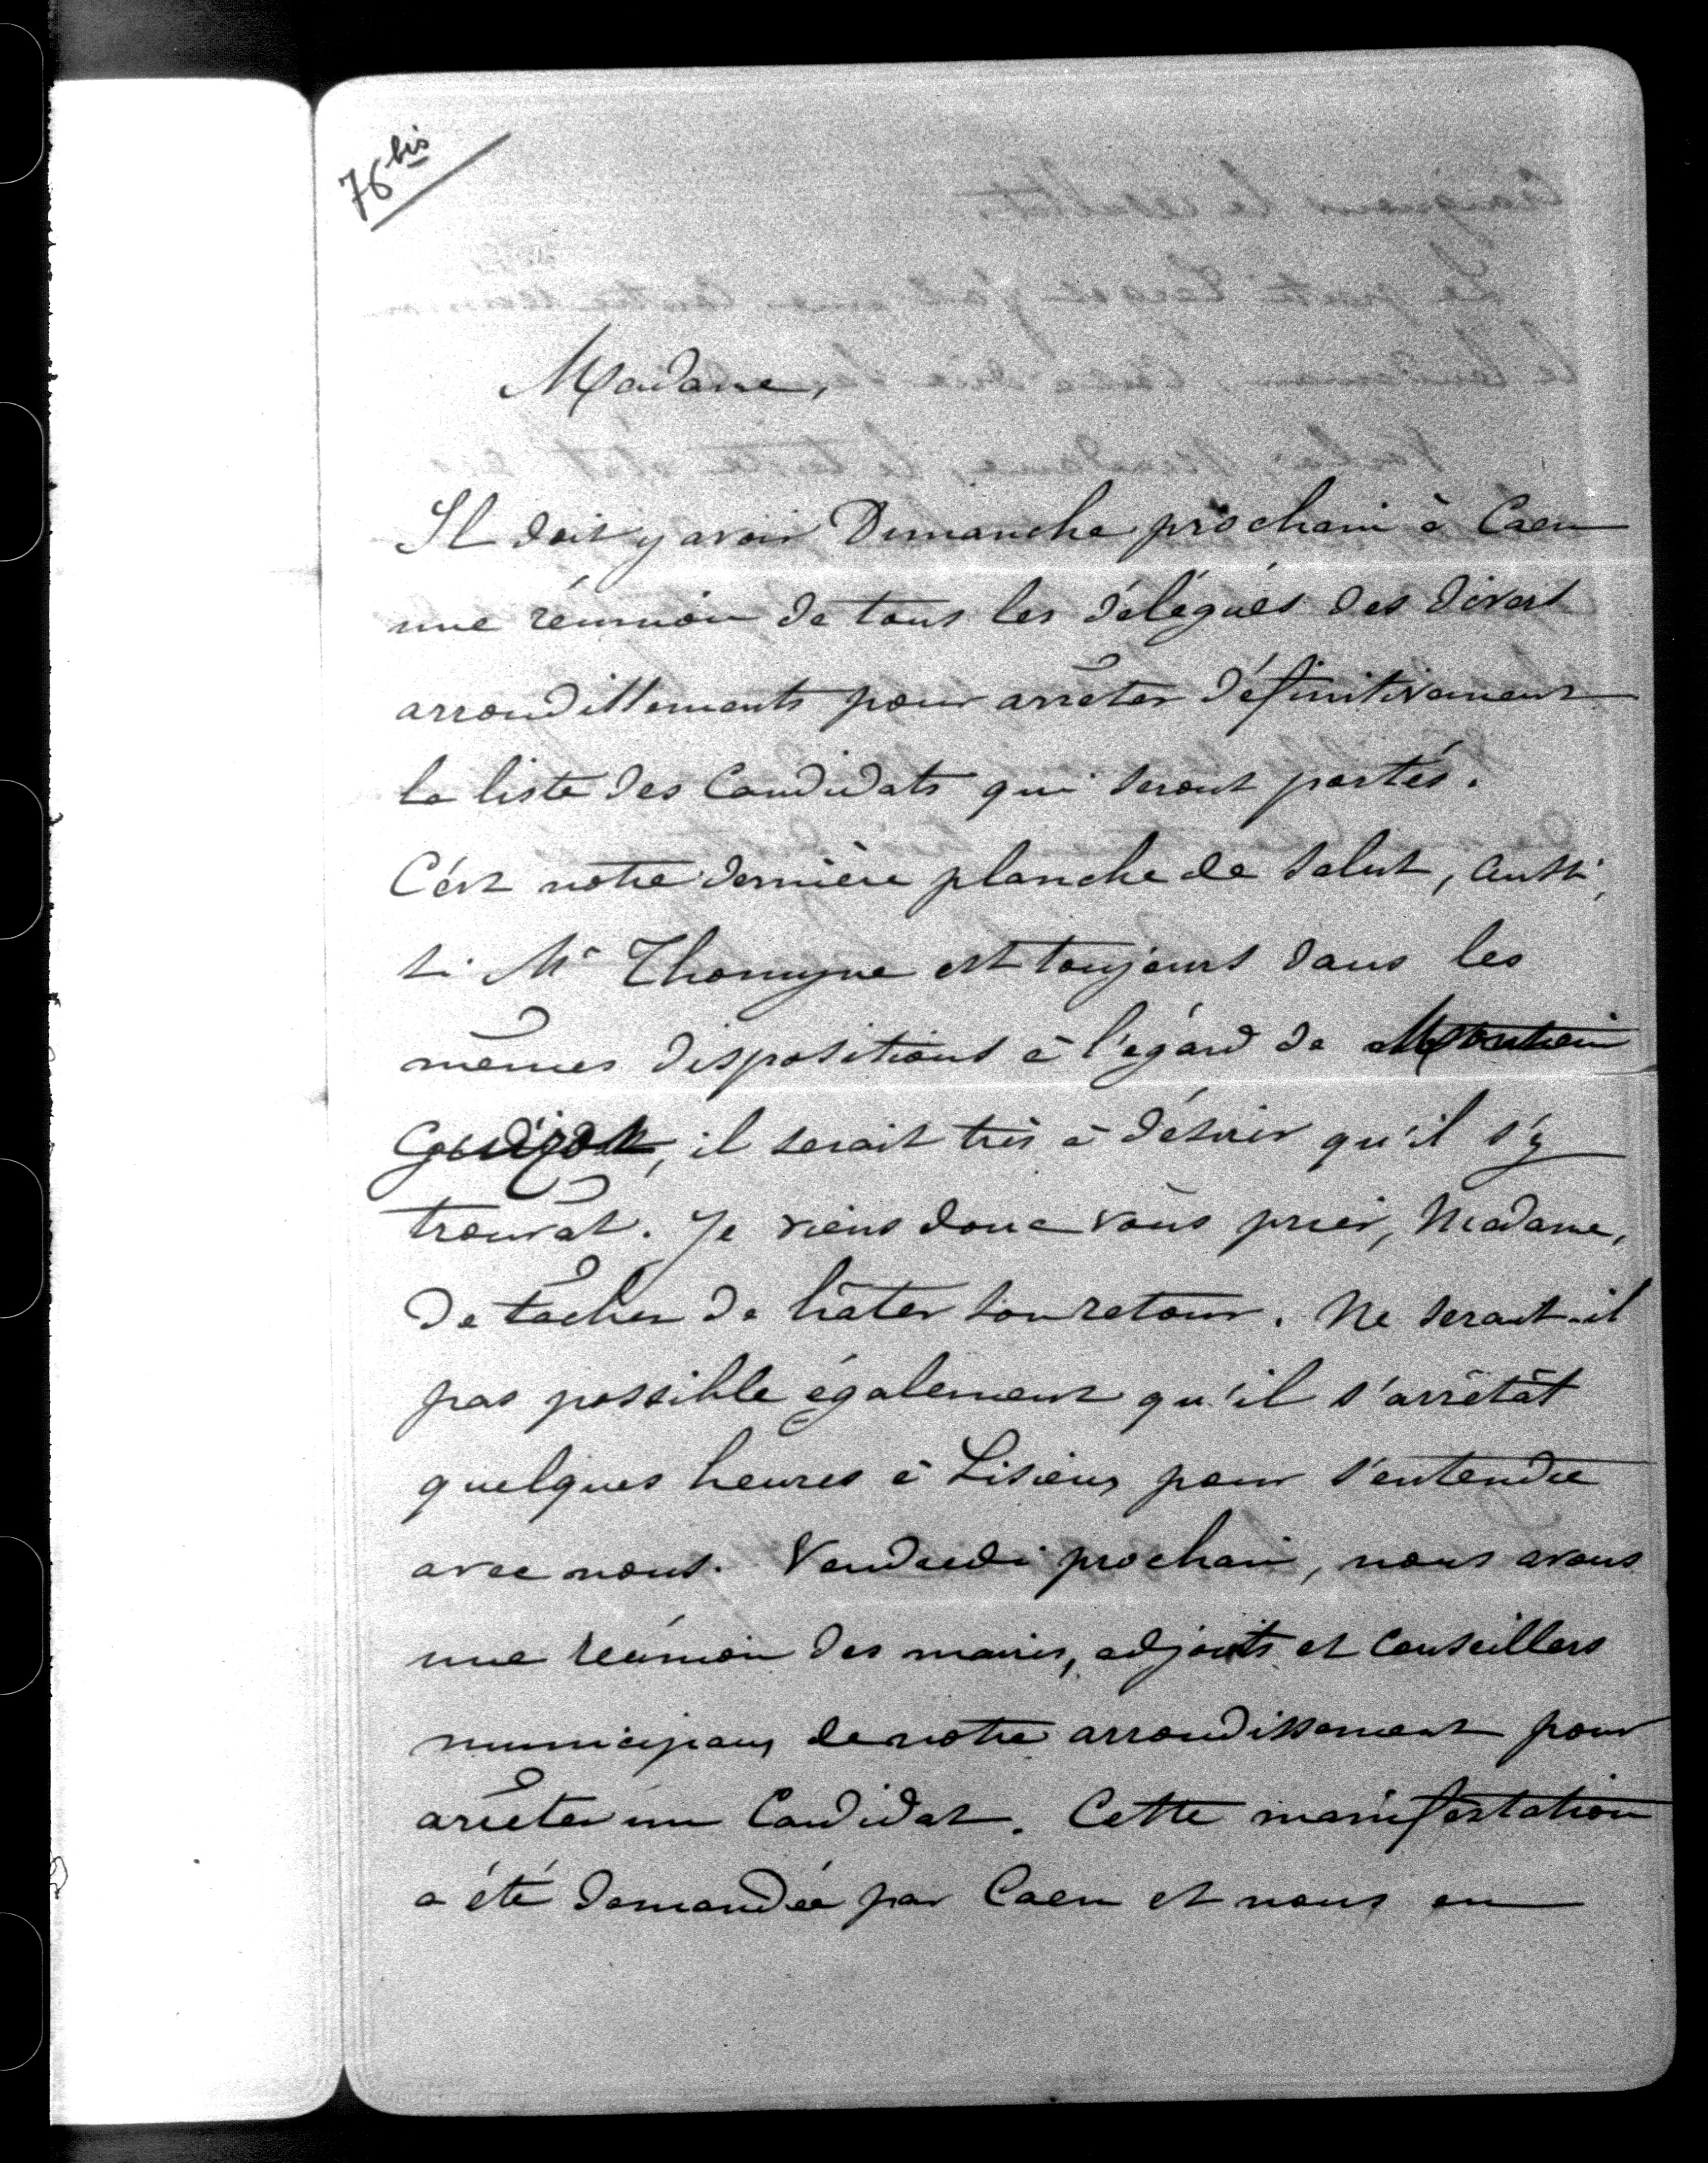 76 bis
Madame,
Il doit y avoir Dimanche prochain à Caen
une réunion de tous les délégués des divers
arrondissements pour arrêter définitivement
la liste des Candidats qui seront portés.
C'est notre dernière planche de salut, aussi,
si Mr Thomyne est toujours dans les
mêmes dispositions à l'égard de
Guizot, il serait très à désirer qu'il s'y
trouvât. Je viens donc vous prier, Madame,
de tâcher de hâter son retour. Ne serait-il
pas possible également qu'il s'arrêtât
quelques heures à Lisieux pour s'entendre
avec nous. Vendredi prochain, nous avons
une réunion des maires, adjoints et Conseillers
municipaux de notre arrondissement pour
arrêter un Candidat. Cette manifestation
a été demandée par Caen et nous en